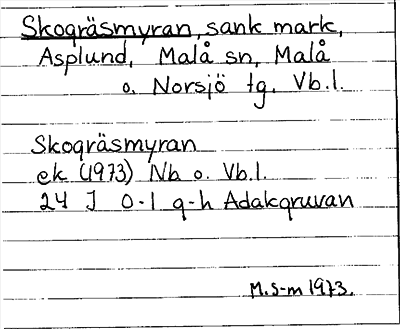 Skogräsmyran, sank mark,
Asplund, Malå sn, Malå
o. Norsjö tg. Vb.l.
Skogräsmyran
ek (1973) Nb o. Vb.l.
24 J 0-1 g-h Adakgruvan
M.S-m 1973.